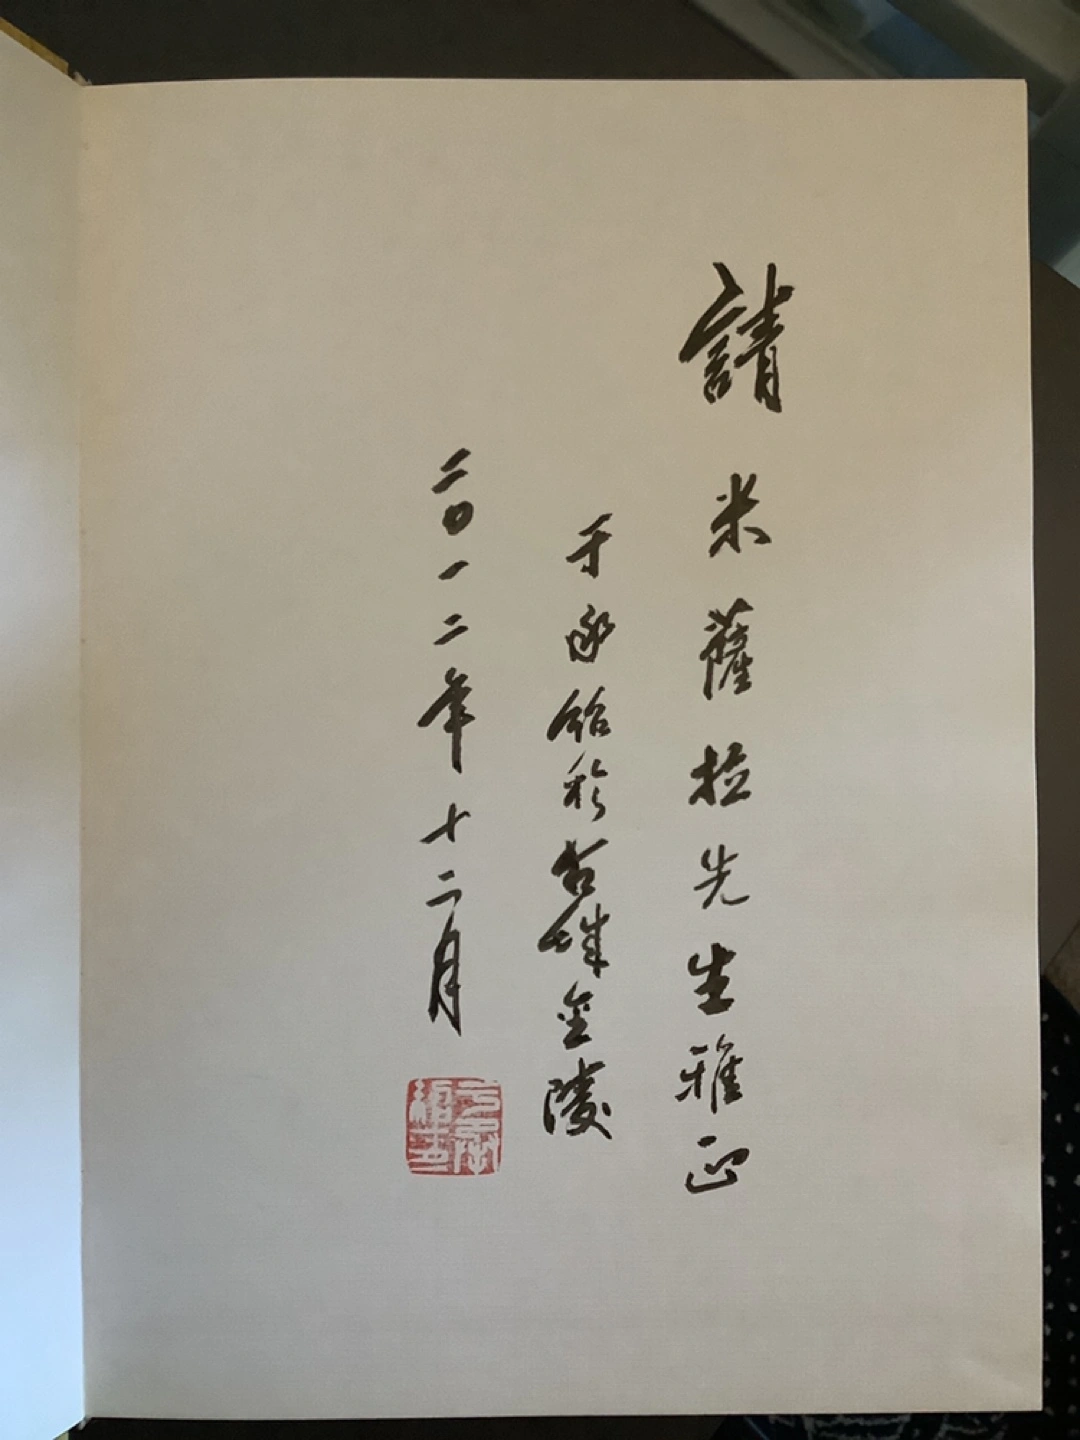 請米薩拉先生雅正
于承於古城金陵
二〇一二年十二月